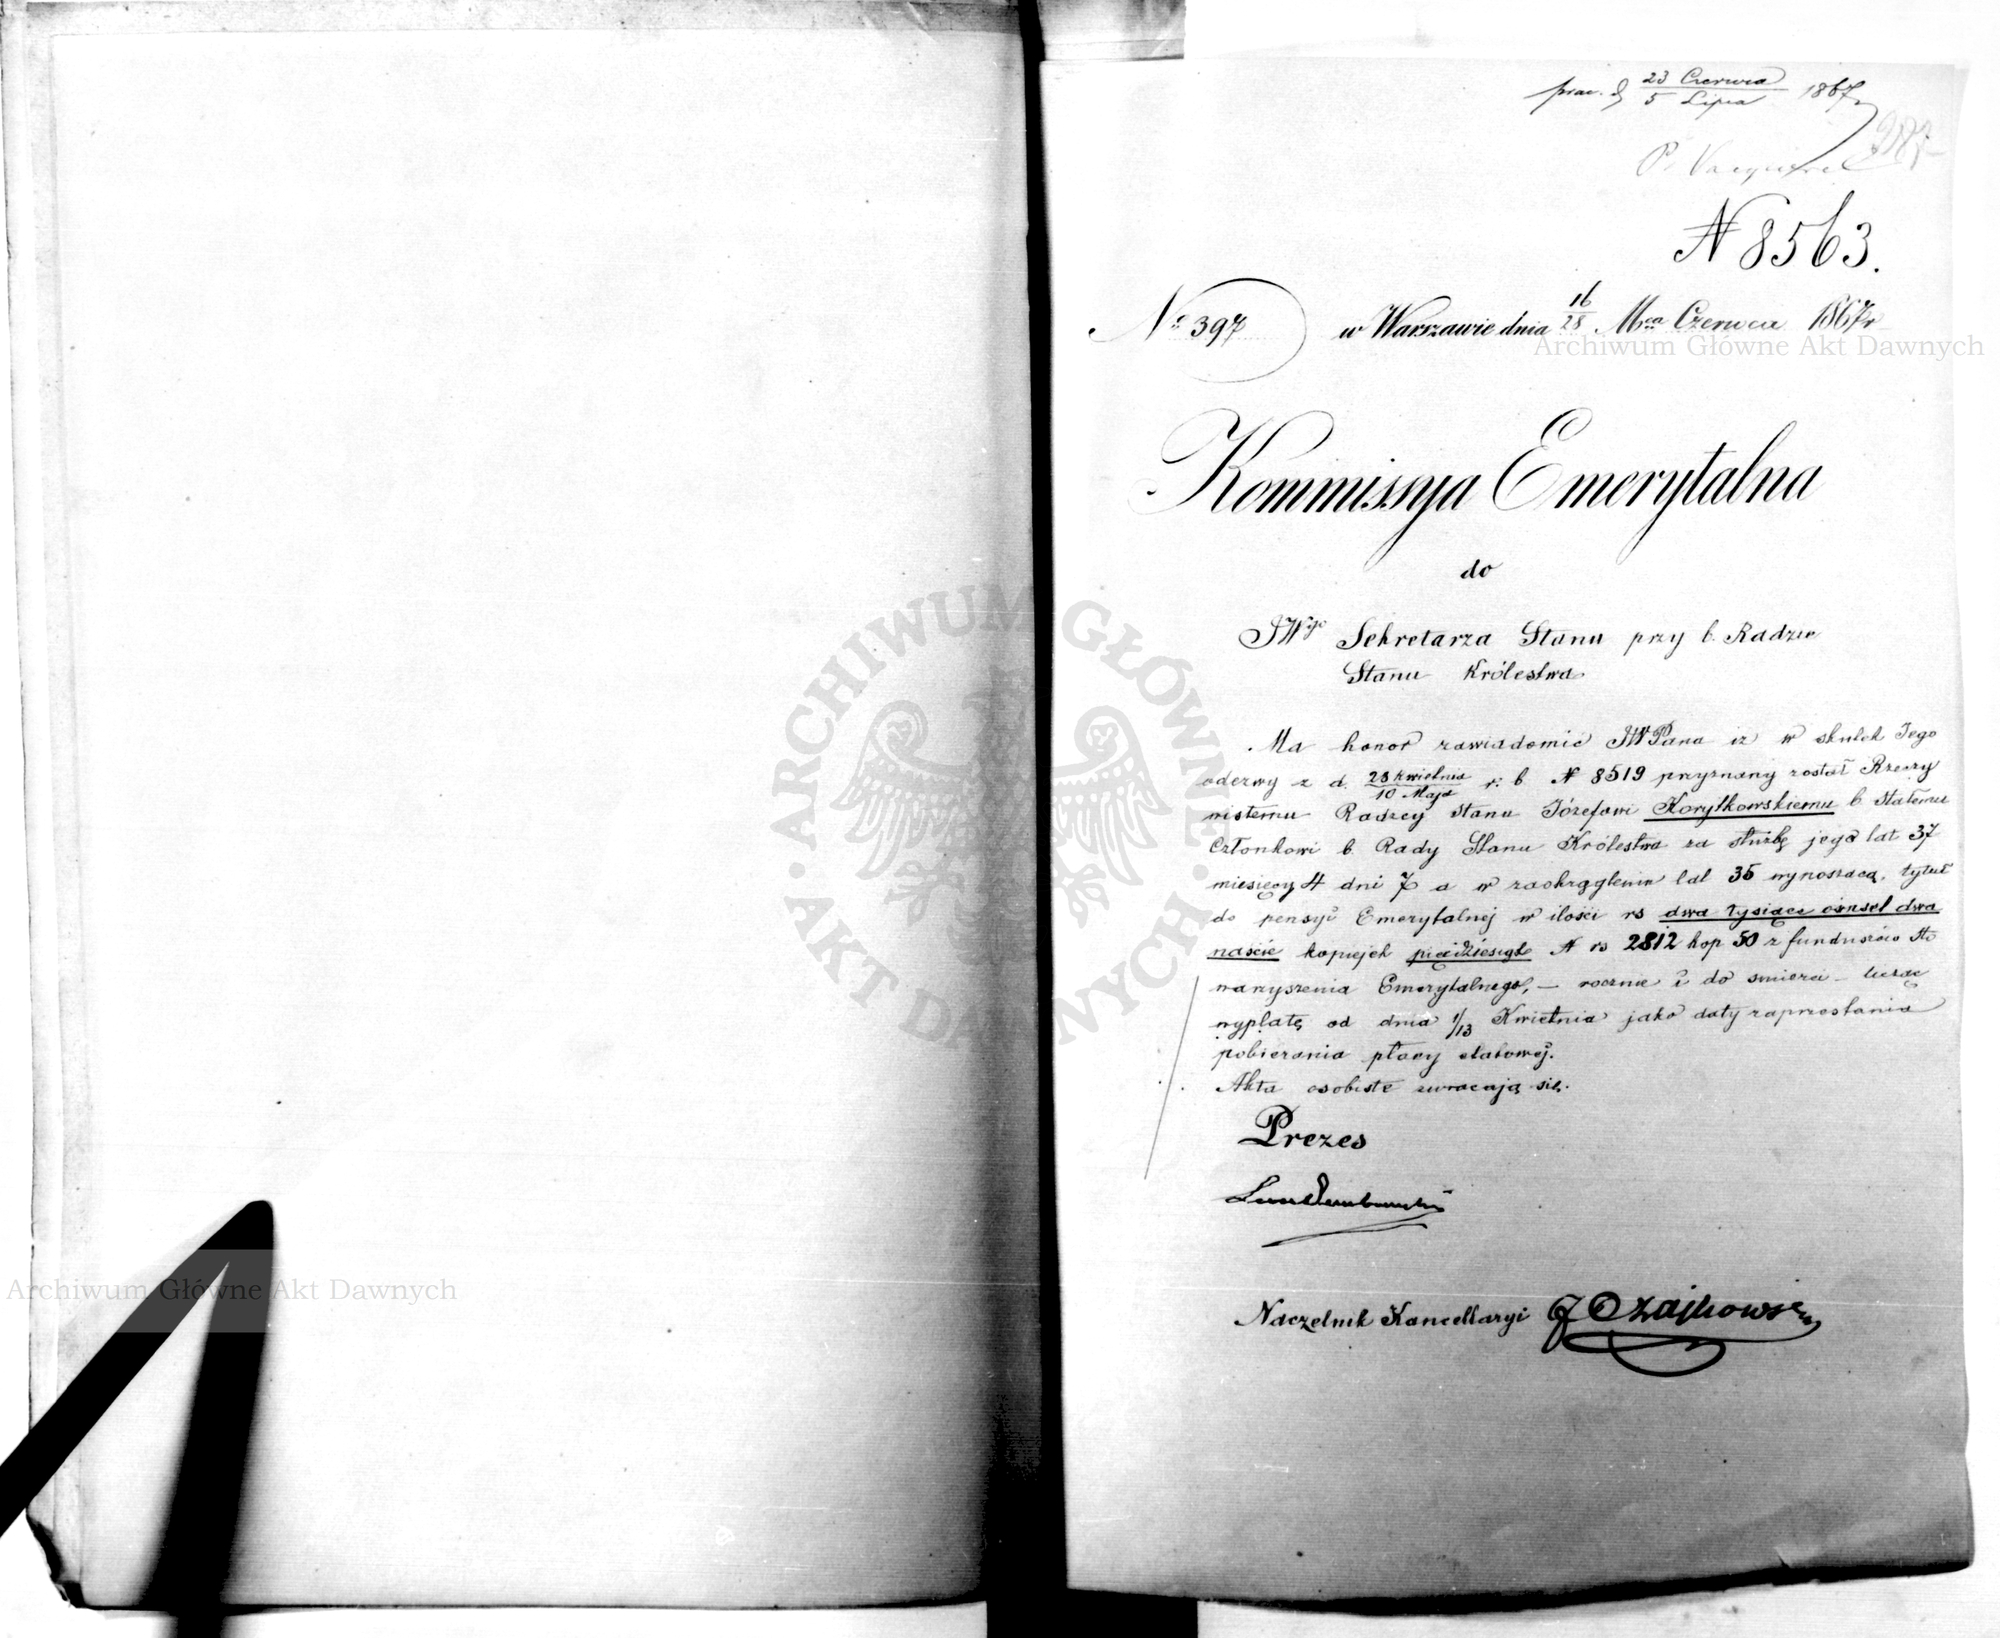 23 Czerwca
5 Lipca 1867
N 8563.
No 397 w Warszawie dnia 16/28 Mca Czerwca 1867 r
Archiwum Główne Akt Dawnych
Kommissya Emerytalna
do
JWgo Sekretarza Stanu przy b. Radzie
Stanu Królestwa
Ma honor zawiadomić JWPana iż w skutek Jego
odezwy z d. 28 Kwietnia / 10 Maja r. b. N 8519 przyznany został Rzeczy
wistemu Radzcy Stanu Józefowi Korytkowskiemu b. Stałemu
Członkowi b. Rady Stanu Królestwa za służbę jego lat 37
miesięcy 4 dni 7 a w zaokrągleniu lat 35 wynoszącą, tytuł
do pensyi Emerytalnej w ilości rs dwa tysiące ośmset dwa
naście kopiejek pięćdziesiąt N rs 2812 kop 50 z funduszów Sto
warzyszenia Emerytalnego, — rocznie i do śmierci — licząc
wypłatę od dnia 1/13 Kwietnia jako daty zaprzestania
pobierania płacy etatowej.
Akta osobiste zwracają się.
Prezes
Naczelnik Kancellaryi J Czajkowski
ARCHIWUM GŁÓWNE AKT DAWNYCH
Archiwum Główne Akt Dawnych